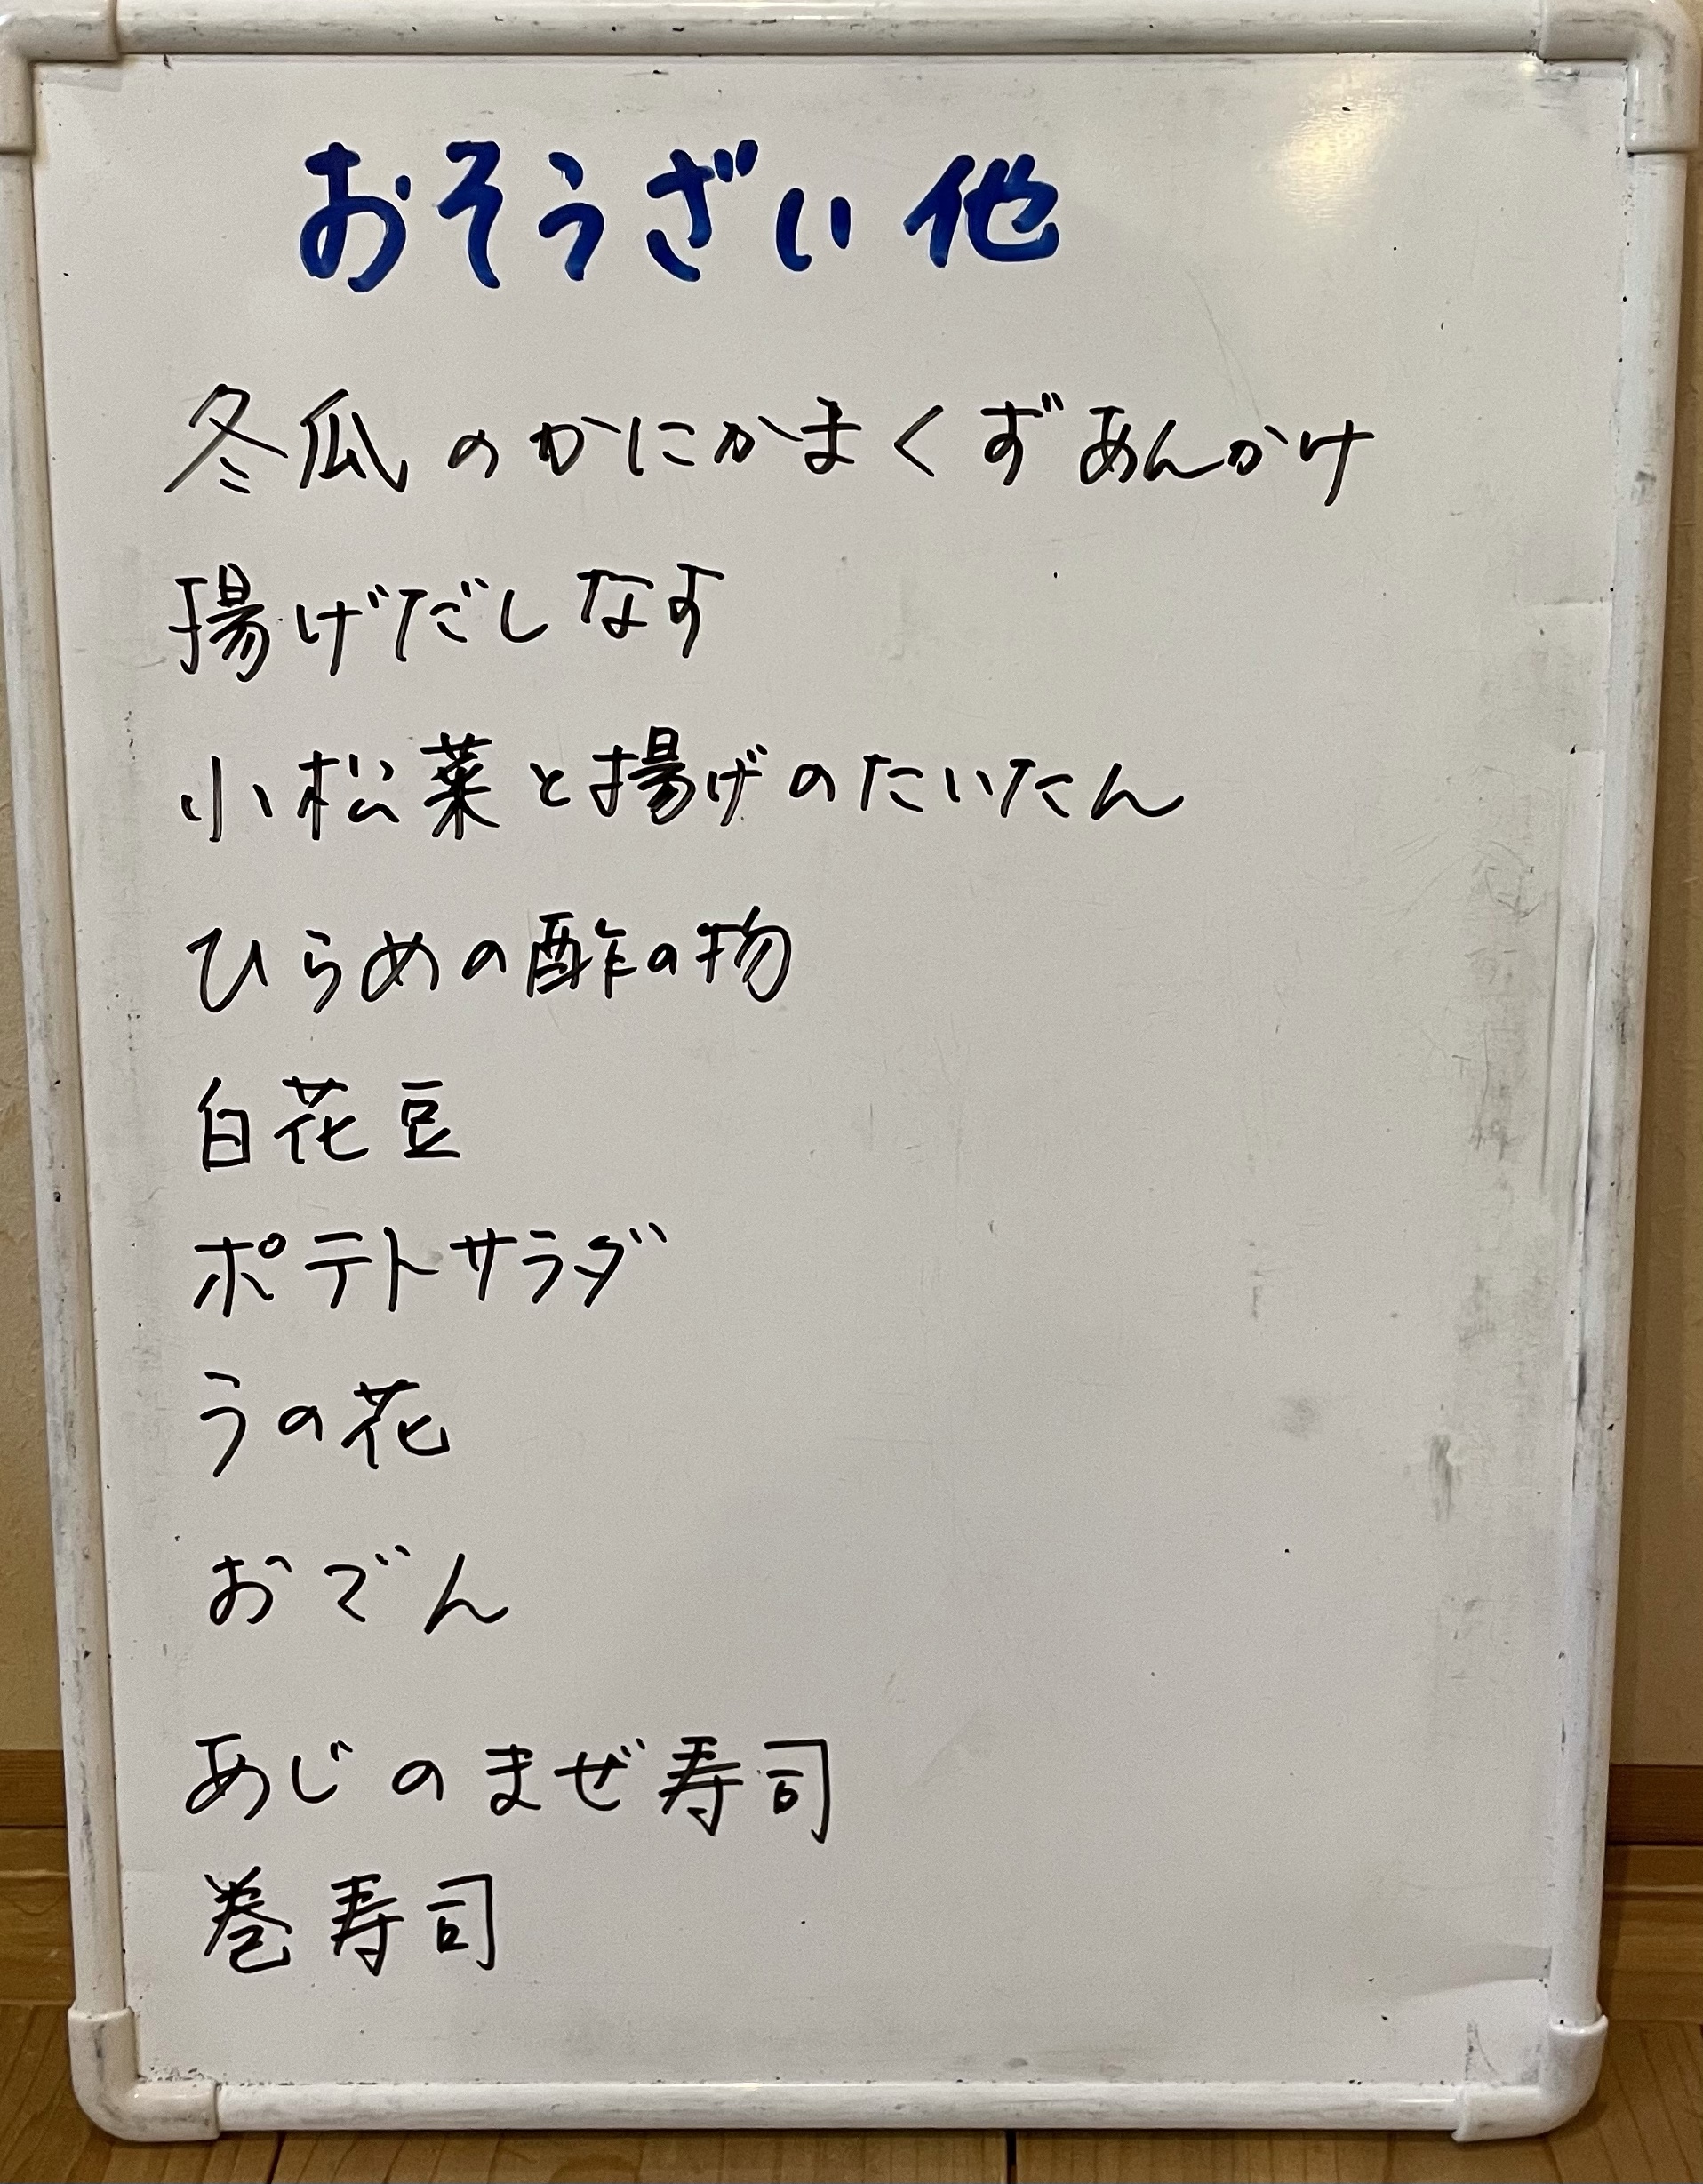 おそうざい他
冬瓜のかにかまくずあんかけ
揚げだしなす
小松菜と揚げのたいたん
ひらめの酢の物
白花豆
ポテトサラダ
うの花
おでん
あじのまぜ寿司
巻寿司